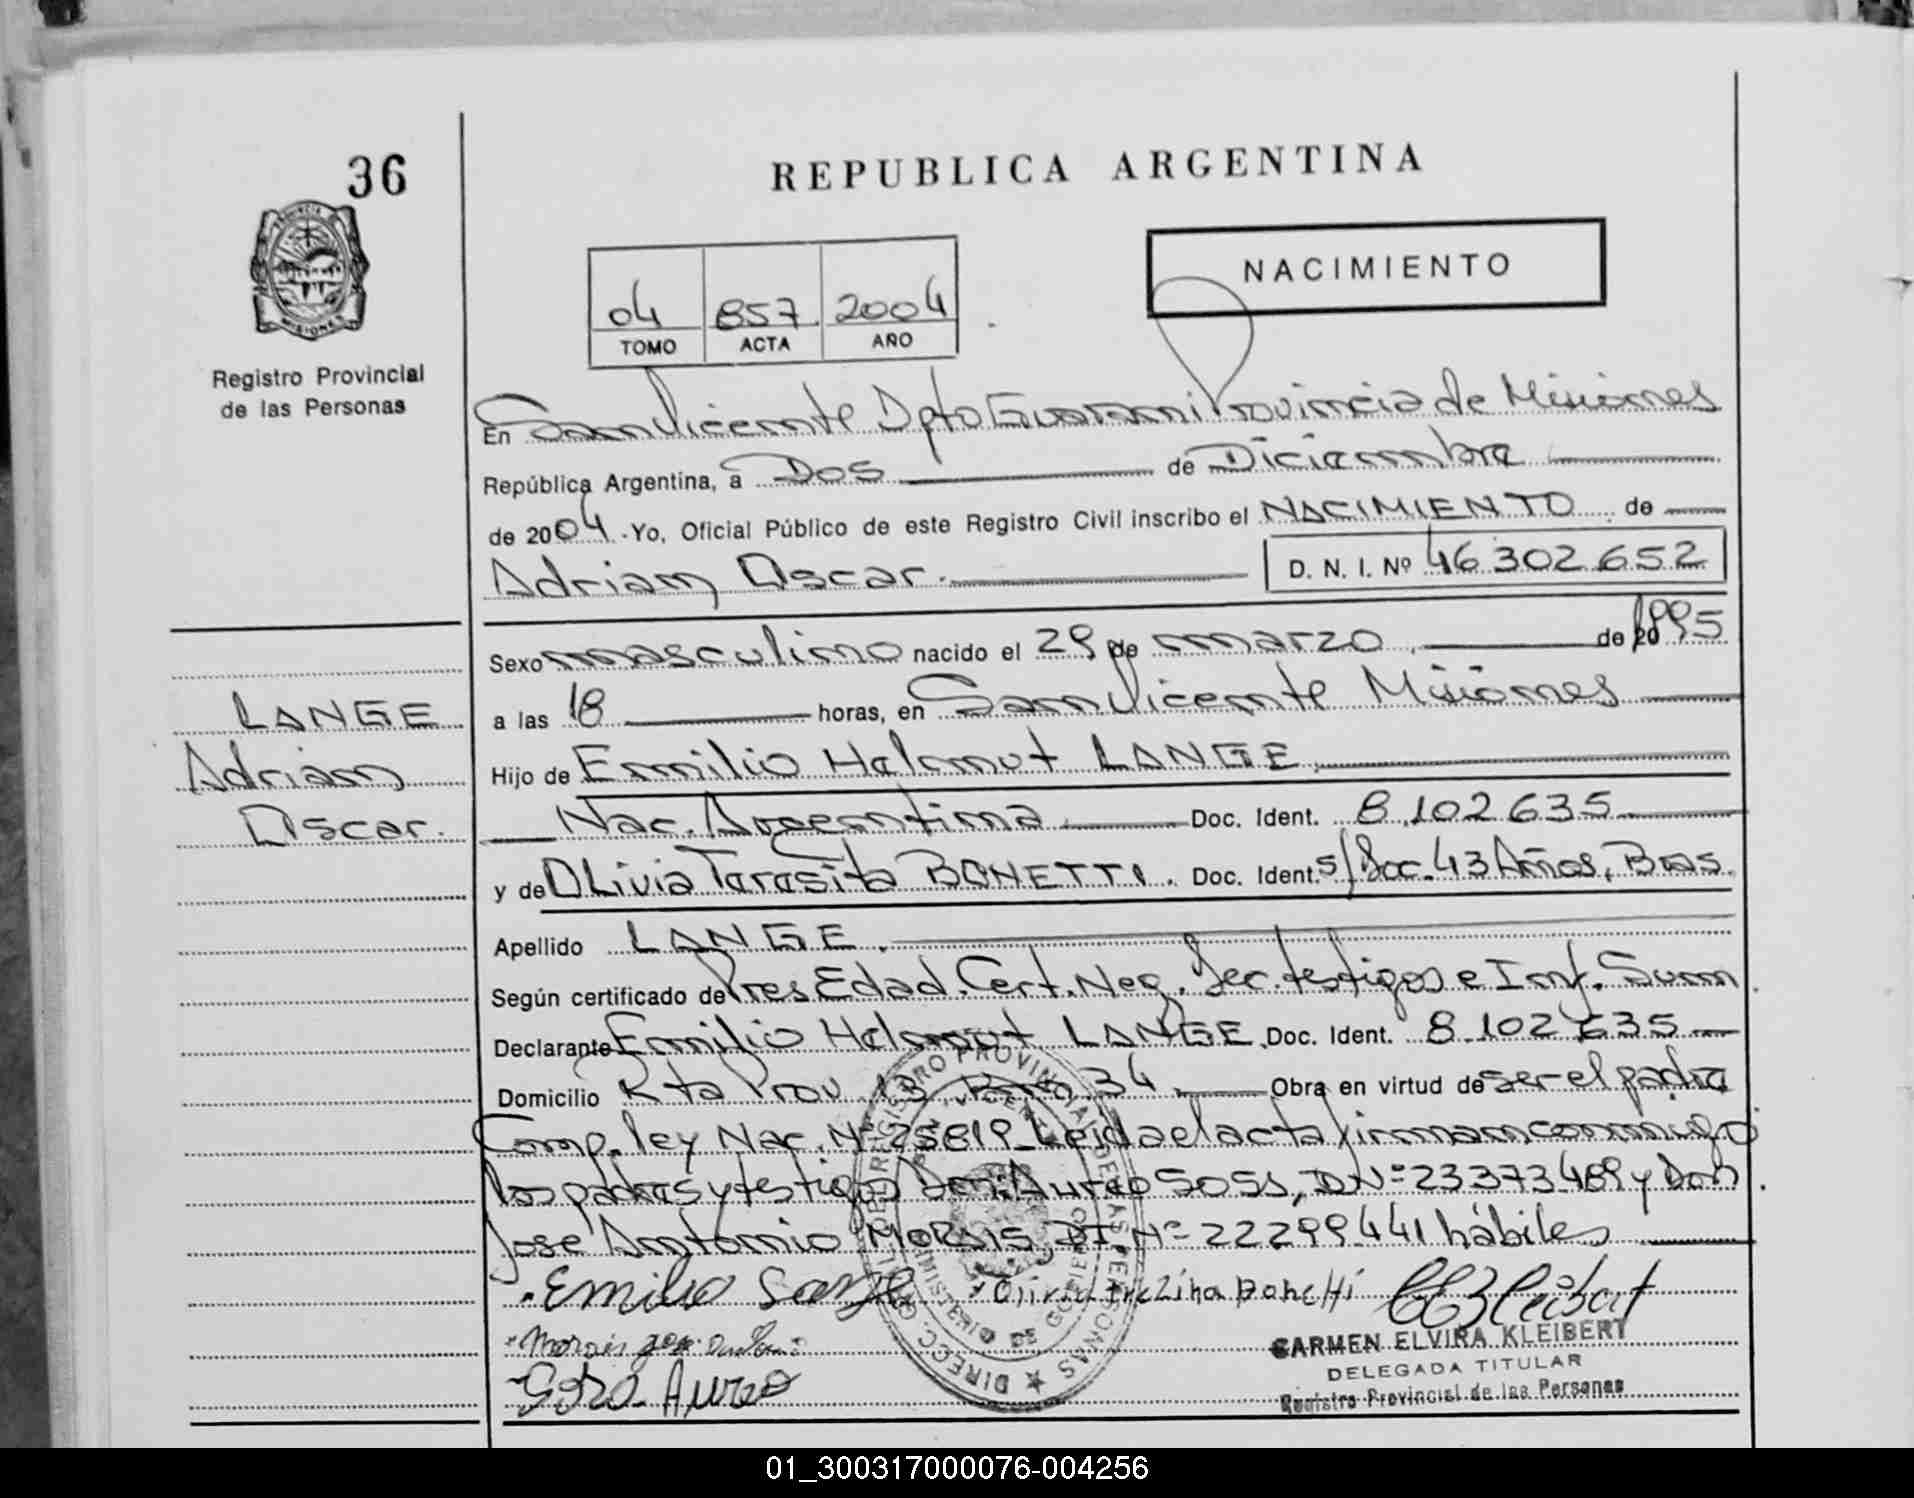 36
REPUBLICA ARGENTINA
PROVINCIA
MISIONES
Registro Provincial
de las Personas
NACIMIENTO
04 857 2004
TOMO ACTA AÑO
En San Vicente Dpto Guarani Provincia de Misiones
República Argentina, a Dos de Diciembre
de 2004. Yo, Oficial Público de este Registro Civil inscribo el NACIMIENTO de
Adrian Oscar. D. N. I. Nº 46.302.652
Sexo masculino nacido el 29 de marzo de 20 1995
a las 18 horas, en San Vicente Misiones
Hijo de Emilio Helmut LANGE
Nac. Argentina Doc. Ident. 8.102.635
y de OLivia Teresita BONETTI. Doc. Ident. s/Doc. 43 Años, Bras.
Apellido LANGE.
Según certificado de Pres Edad. Cert. Neg. Dec. testigos e Inf. Sum
Declarante Emilio Helmut LANGE. Doc. Ident. 8.102.635
Domicilio Rta Prov. 13 34 Obra en virtud de ser el padre
Comp. ley Nac. Nº 25819. Leida el acta firman conmigo
los padres y testigos Don: Aureo SOSS, DNº 23373489 y Don
Jose Antonio MORAIS, DI. Nº 22299441 hábiles
LANGE
Adrian
Oscar.
Emilio Lange
Bonetti
Morais Jose
Aureo
CARMEN ELVIRA KLEIBERT
DELEGADA TITULAR
Registro Provincial de las Personas
01_300317000076-004256